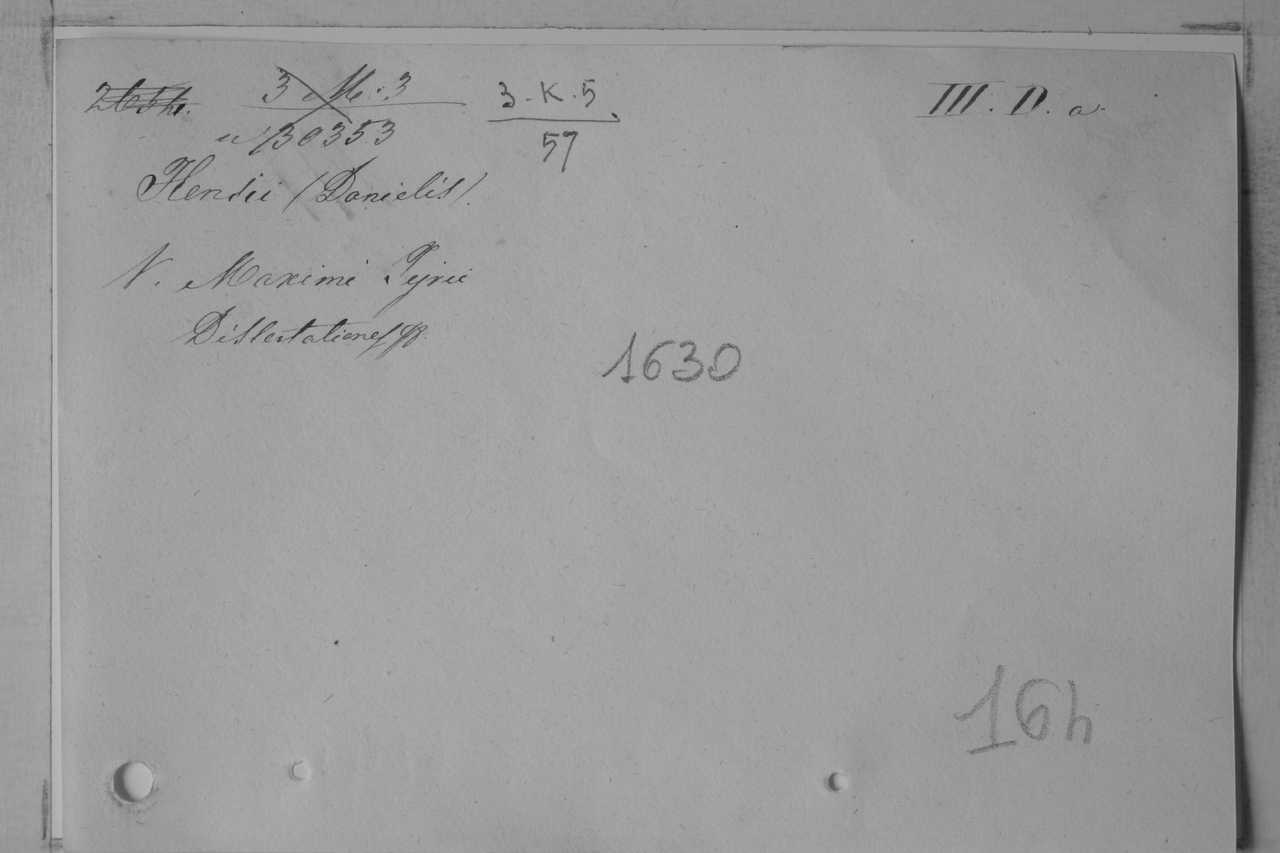 3 M. 3 3 . K . 5 III . D. a.
130353 57
Hensii (Danielis).
V. Maximi Tyrii
Dissertationes
1630
16h